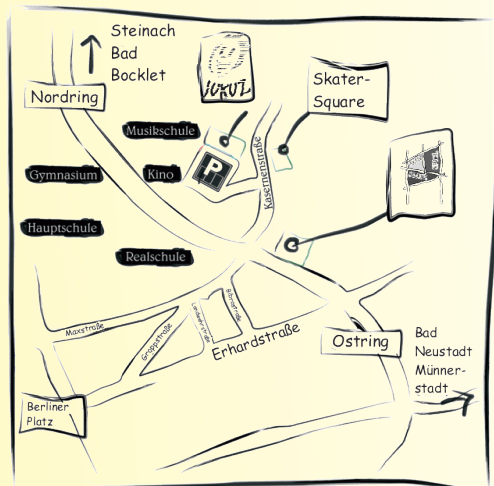 Steinach
Bad
Bocklet
JUKUZ
Skater-
Square
Nordring
Musikschule
P
Gymnasium
Kino
Kasernenstraße
Hauptschule
Realschule
Maxstraße
Groppstraße
Landwehrstraße
Erhardstraße
Ostring
Bad
Neustadt
Münner-
stadt
Berliner
Platz